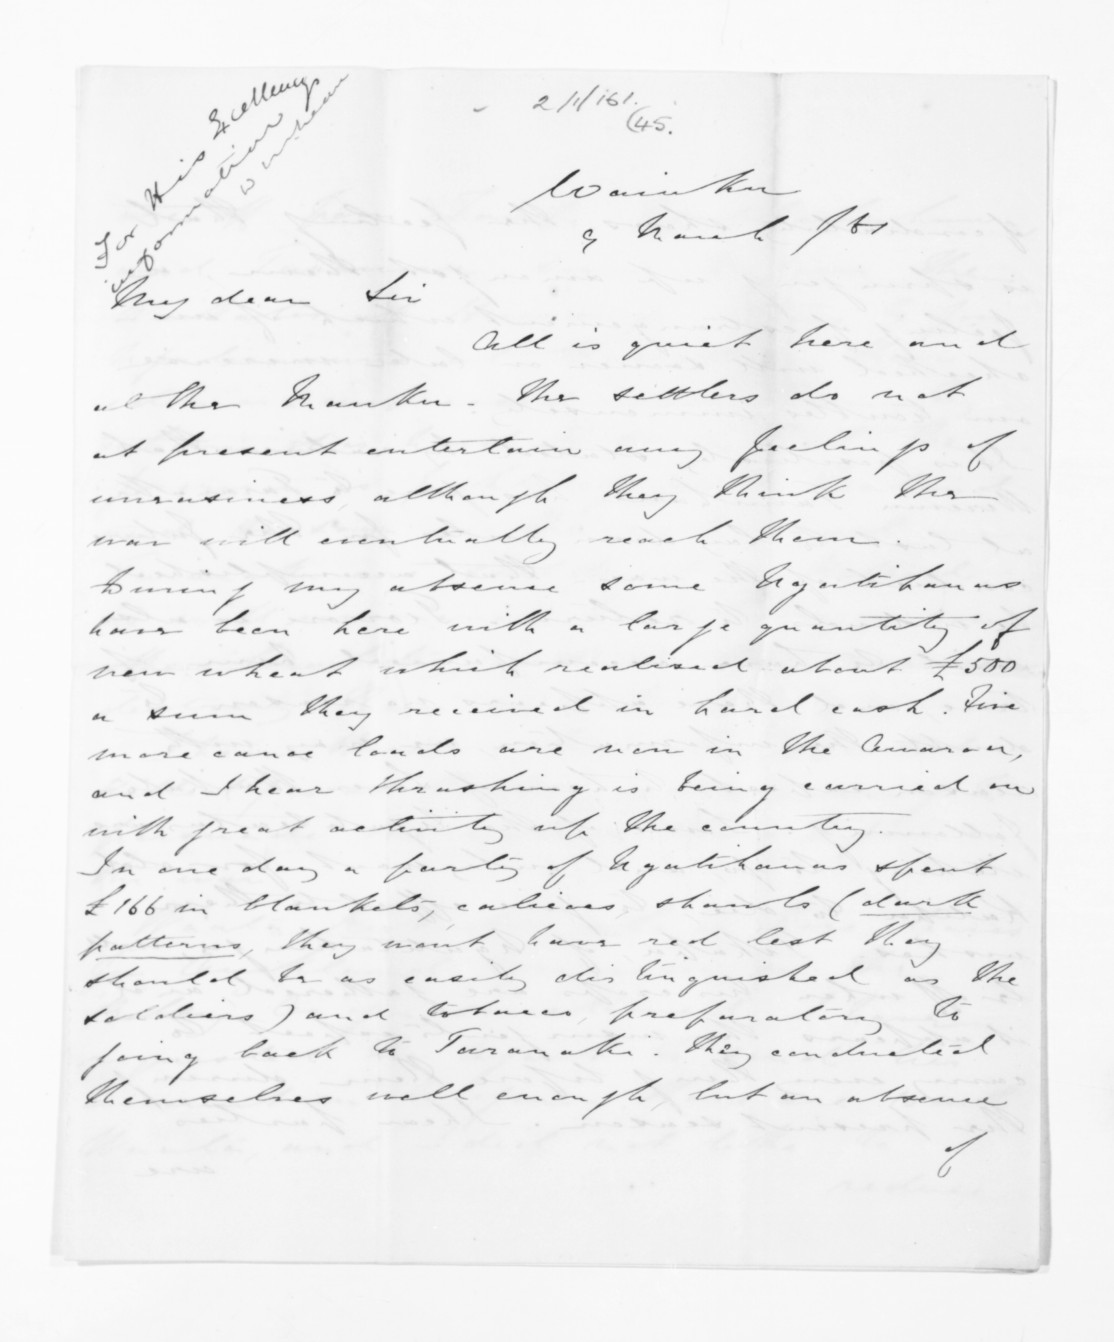 For His Excellency's
information
2/1/161.
(45.
Waiuku
9 March /61
My dear Sir
All is quiet here and
at the Mauku. The settlers do not
at present entertain any feelings of
uneasiness, although they think the
war will eventually reach them.
During my absence some Ngatihauas
have been here with a large quantity of
new wheat which realised about £500
a sum they received in hard cash. Five
more canoe loads are now in the Awaroa,
and I hear thrashing is being carried on
with great activity up the country.
In one day a party of Ngatihauas spent
£166 in blankets, calicoes, shawls (dark
patterns, they wont have red lest they
should be as easily distinguished as the
soldiers) and tobacco, preparatory to
going back to Taranaki. They conducted
themselves well enough, but an absence
of